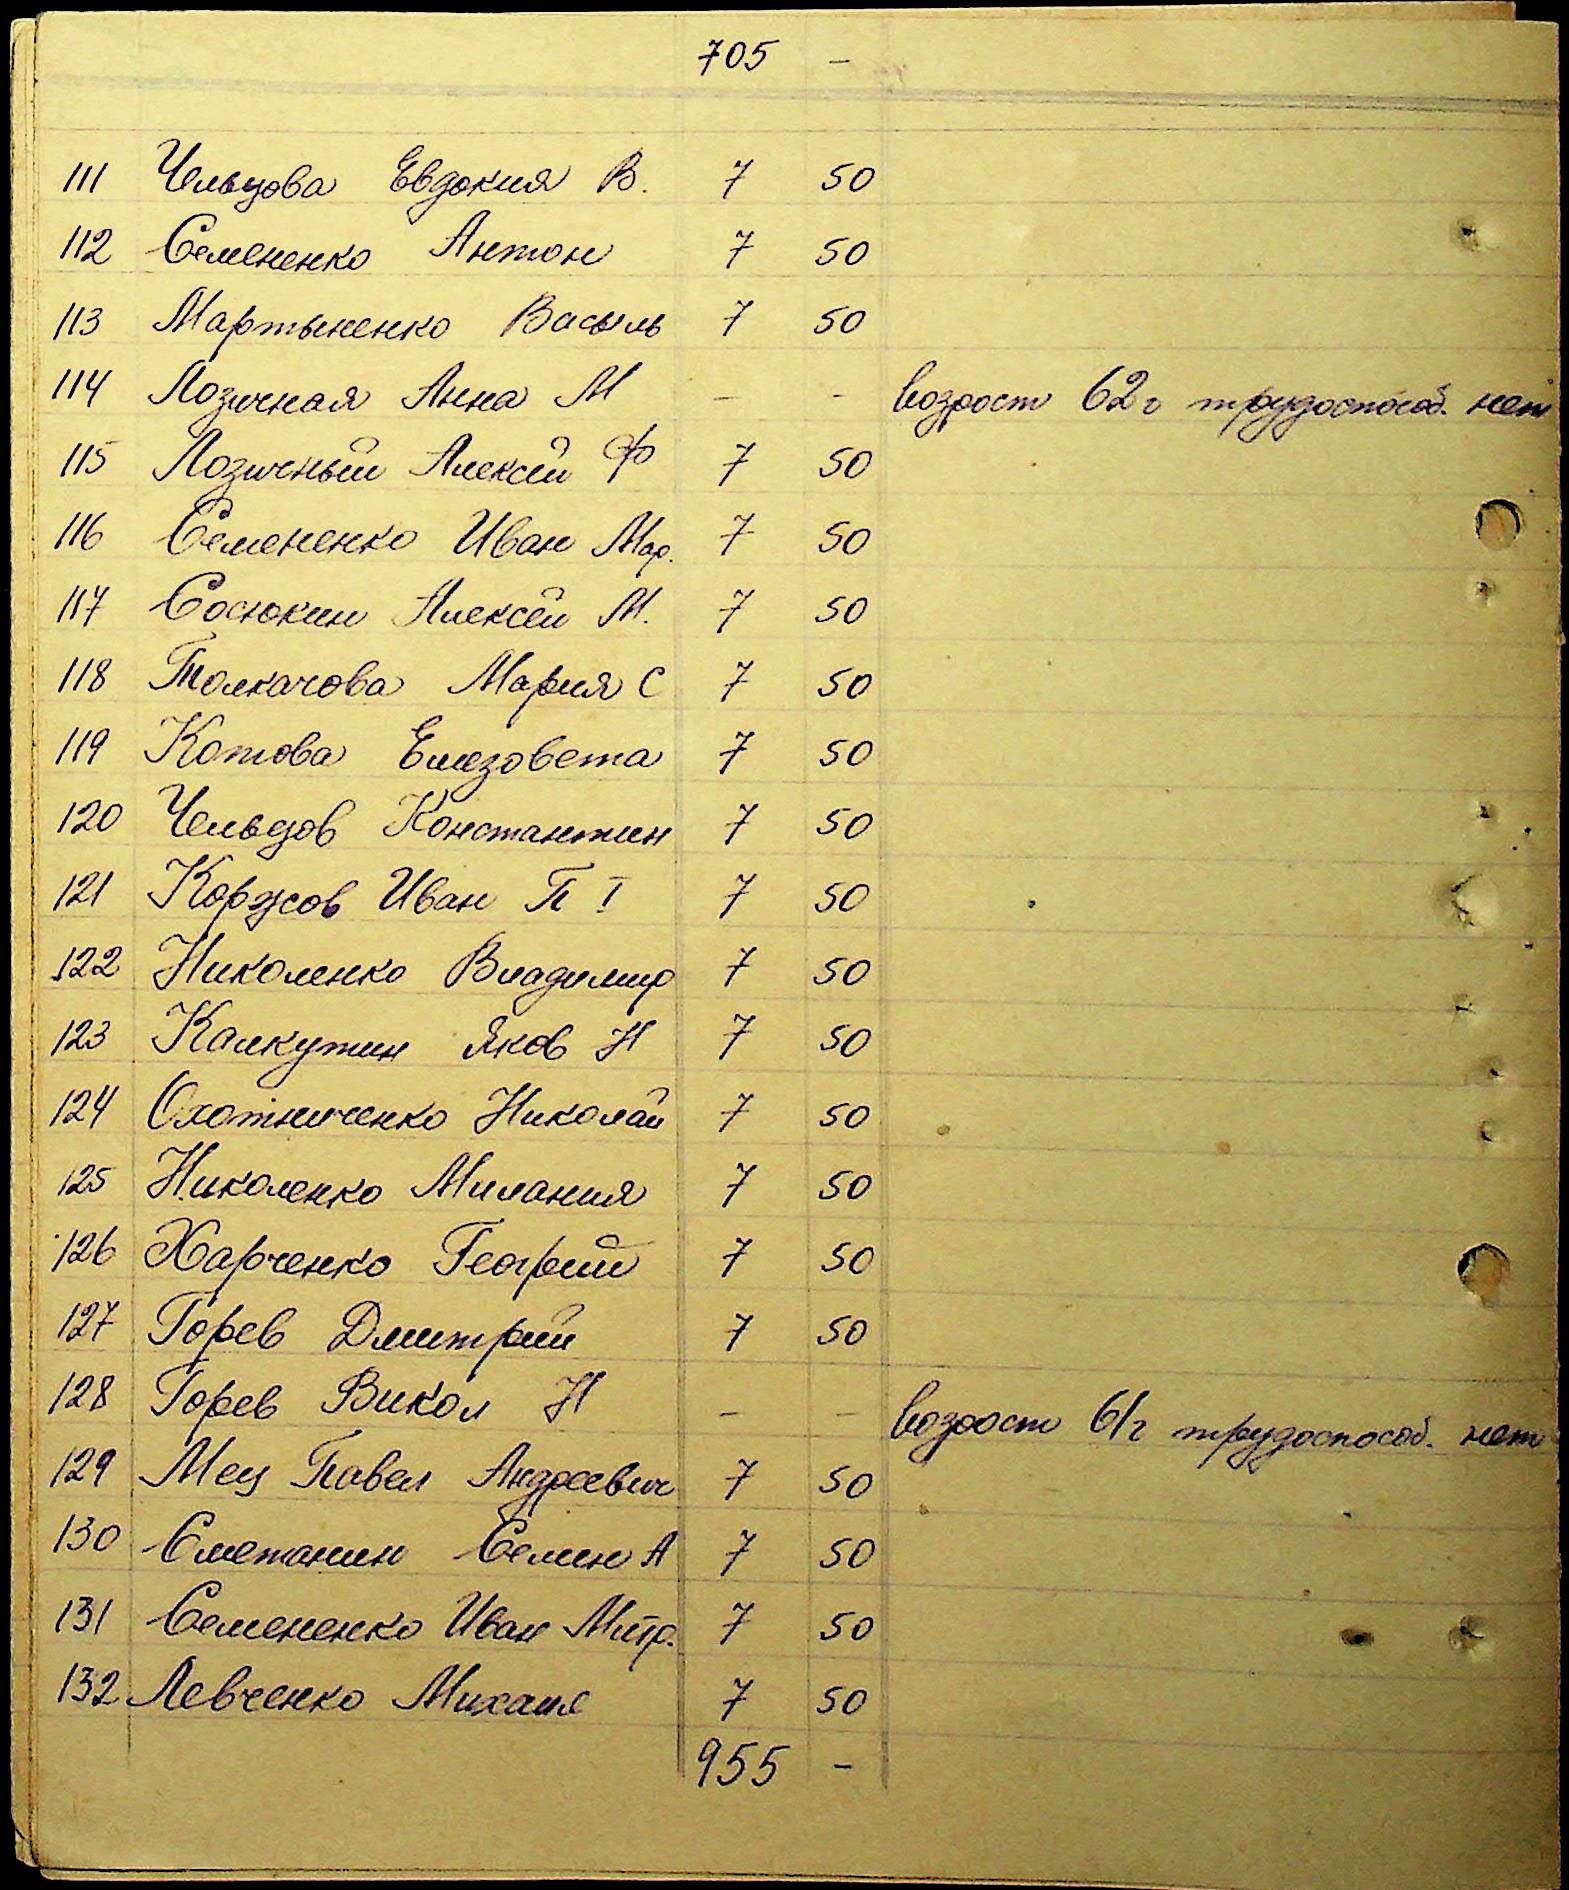 705 -
111 Чельцова Евдокия В. 7 50
112 Семененко Антон 7 50
113 Мартыненко Василь 7 50
114 Лозичная Анна М - - возрост 62 г трудоспособ. нет
115 Лозичный Алексей Ф 7 50
116 Семененко Иван Мар. 7 50
117 Сосюкин Алексей М. 7 50
118 Толкачова Мария С 7 50
119 Котова Елезовета 7 50
120 Чельцов Константин 7 50
121 Коржов Иван П I 7 50
122 Николенко Владимир 7 50
123 Калкутин Яков Н 7 50
124 Охотниченко Николай 7 50
125 Николенко Милания 7 50
126 Харченко Георгий 7 50
127 Горев Дмитрий 7 50
128 Горев Викол Н - - возрост 61 г трудоспособ. нет
129 Мец Павел Андреевич 7 50
130 Сметанин Семен А 7 50
131 Семененко Иван Митр. 7 50
132 Левченко Михаил 7 50
955 -